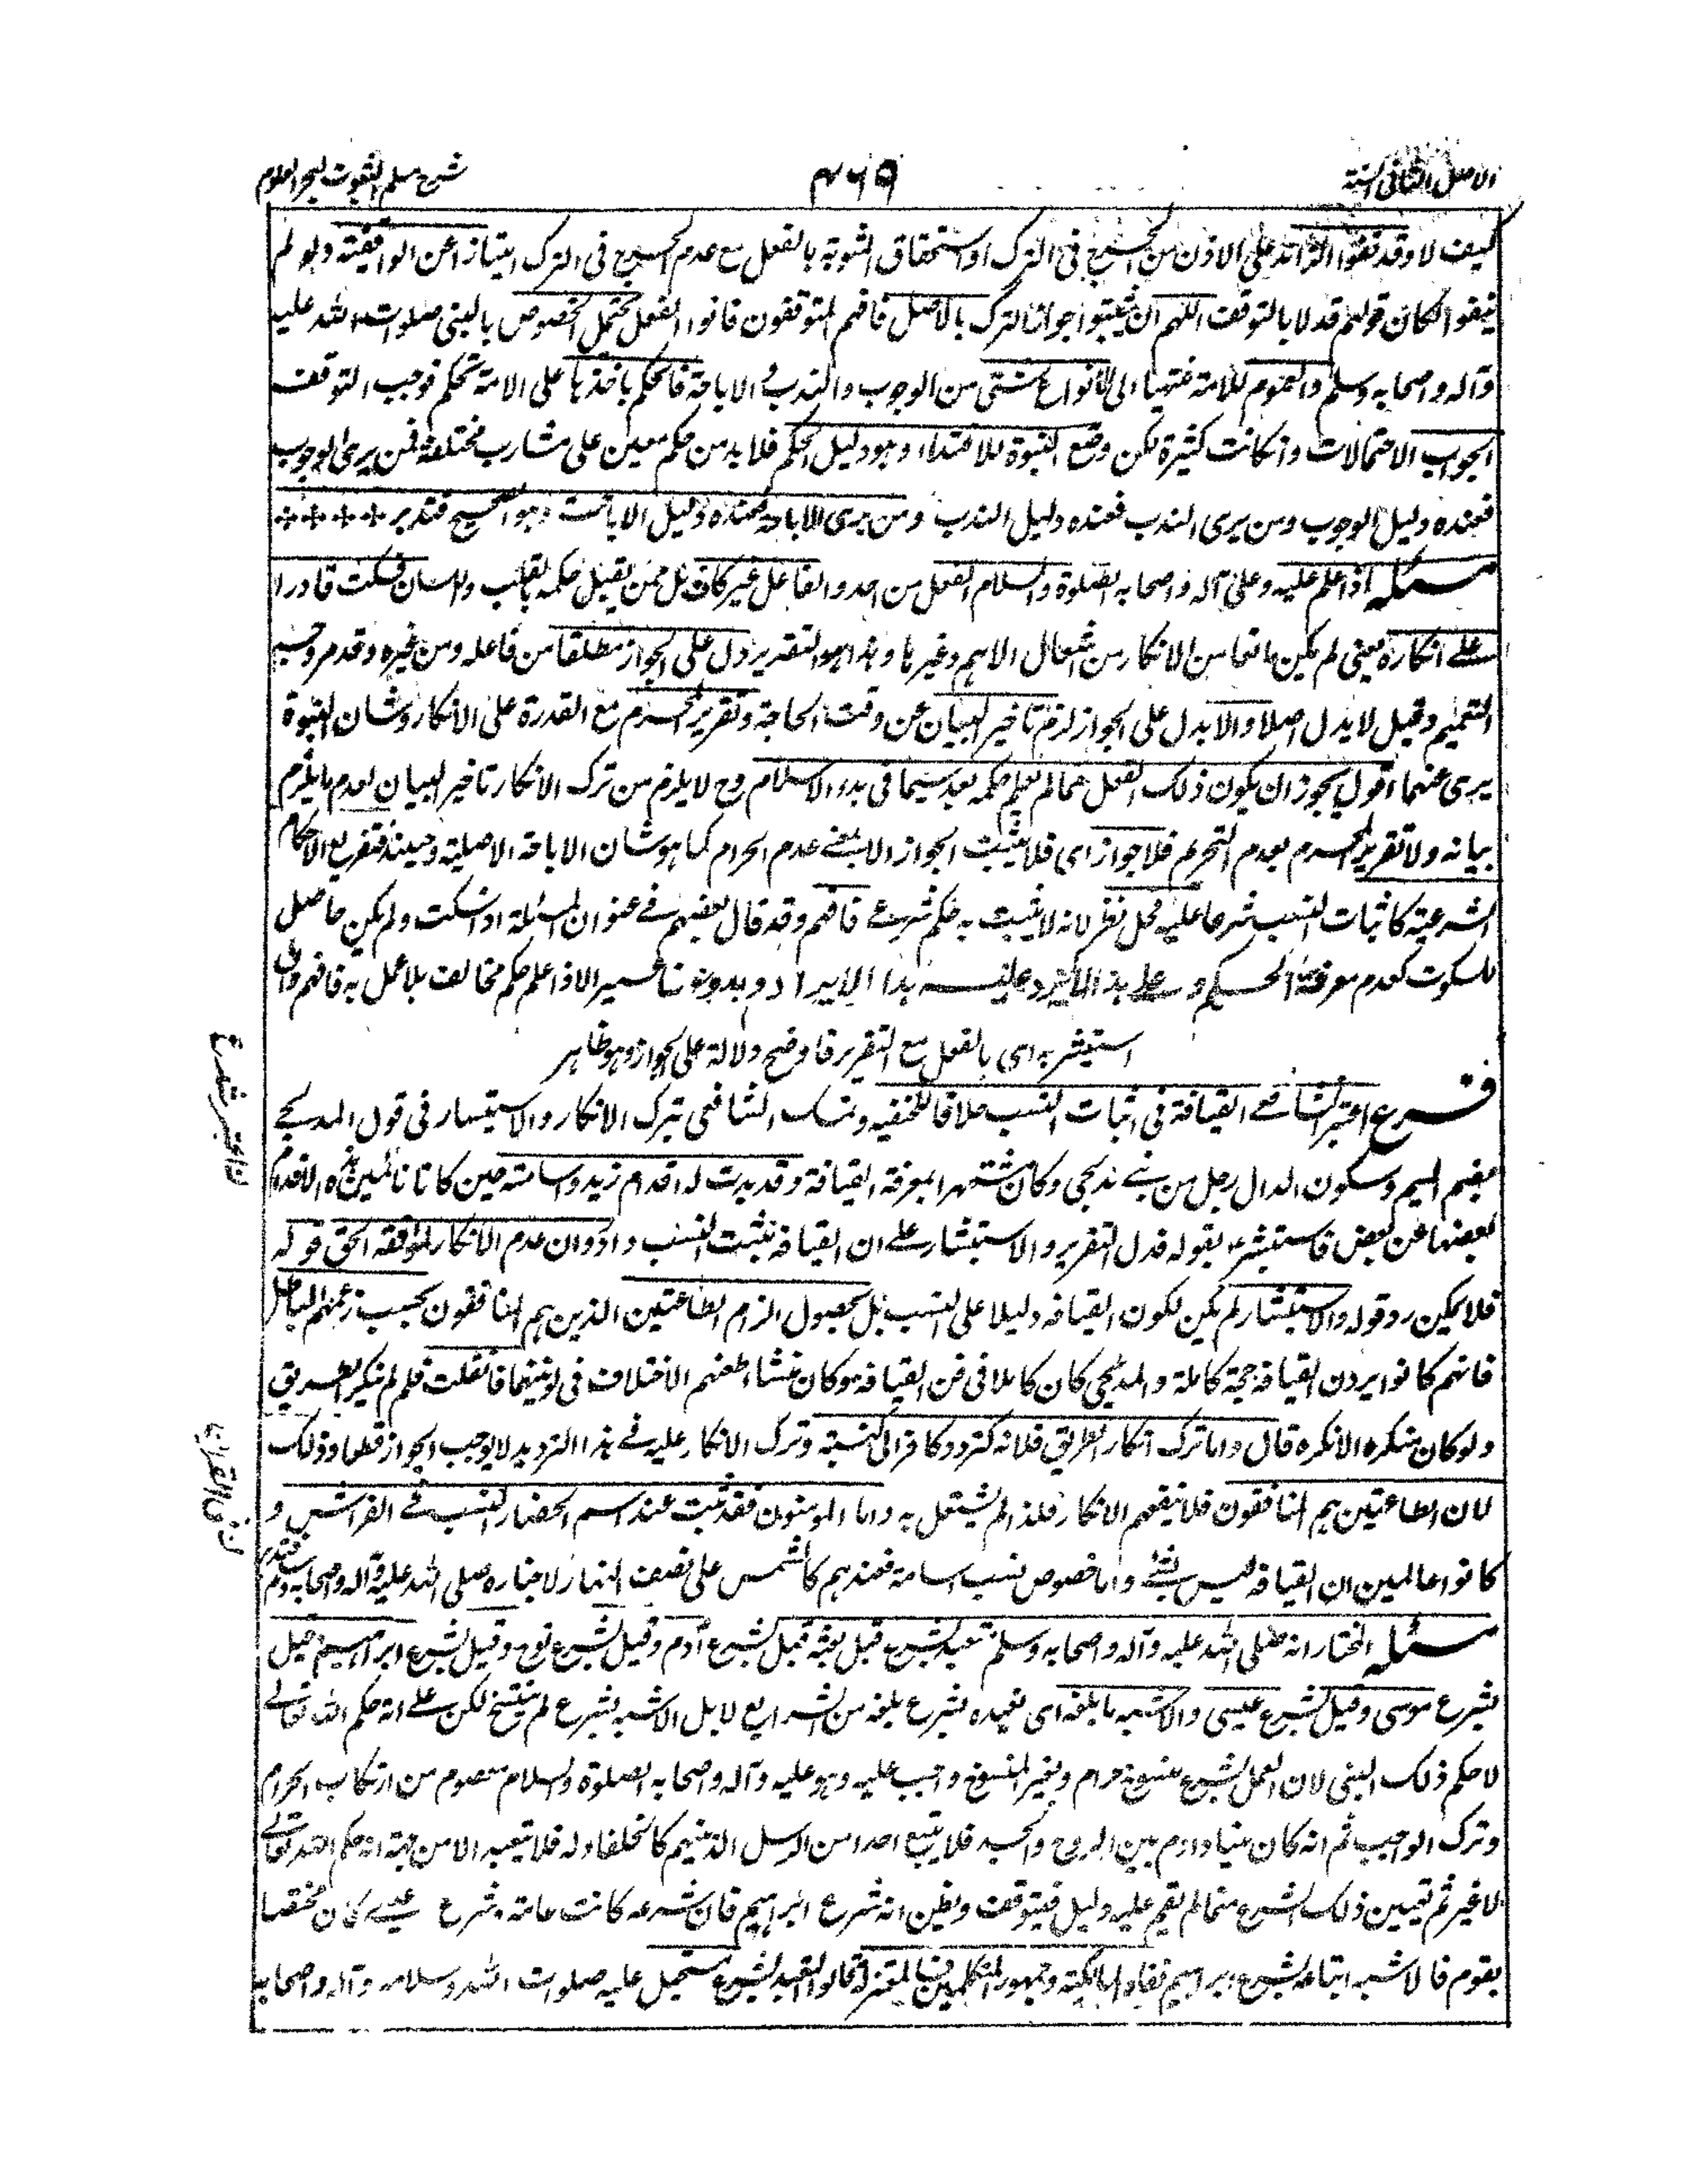 الاصل الثانی السنة
۴۶۹
شرح مسلم الثبوت لبحر العلوم
كيف لا وقد نفوا الزائد على الاذن من الحرج فى الترك او استحقاق المثوبة بالفعل مع عدم الحرج فى الترك امتيازا عن الواقفية ولو لم
ينفوا لكان قولهم قولا بالتوقف اللهم ان يثبتوا جواز الترك بالاصل فافهم المتوقفون قالوا الفعل يحتمل الخصوص بالنبى صلوات الله عليه
وآله واصحابه وسلم والعموم للامة منتهيا الى انواع شتى من الوجوب والندب والاباحة فالحكم باخذها على الامة تحكم فوجب التوقف
الجواب الاحتمالات وان كانت كثيرة لكن وضع النبوة للاقتداء وهو دليل الحكم فلا بد من حكم معين على مشارب مختلفة فمن يرى الوجوب
فعنده دليل الوجوب ومن يرى الندب فعنده دليل الندب ومن يرى الاباحة فعنده دليل الاباحة وهو الصحيح فتدبر
مسئلة اذا علم عليه وعلى آله واصحابه الصلوة والسلام الفعل من احد والفاعل غير كافر بل ممن يقبل حكمه بالقلب واللسان فسكت قادرا
على انكاره يعنى لم يكن مانعا من الانكار من اشتغال الاهم وغيرها وهذا هو التقرير دل على الجواز مطلقا من فاعله ومن غيره وقد مر وجه
التعميم وقيل لا يدل اصلا والا يدل على الجواز لزم تاخير البيان عن وقت الحاجة وتقرير المحرم مع القدرة على الانكار وشان النبوة
برى عنهما اقول يجوز ان يكون ذلك الفعل مما لم يعلم حكمه بعد سيما فى بدء الاسلام وح لا يلزم من ترك الانكار تاخير البيان لعدم ما يلزم
بيانه ولا تقرير المحرم لعدم التحريم فلا جواز اى فلا يثبت الجواز الا بمعنى عدم الحرام كما هو شان الاباحة الاصلية وحينئذ فتفريع الاحكام
الشرعية كاثبات النسب شرعا عليه محل نظر لانه لا يثبت به حكم شرعى فافهم وقد قال بعضهم فى عنوان المسئلة اذا سكت ولم يكن حاصل
للسكوت كعدم معرفة الحكم و على هذا لا يرد عليه هذا الايراد و بدونه
استبشر به اى بالفعل مع التقرير فاوضح دلالة على الجواز وهو ظاهر
فرع اعتبر الشافعى القيافة فى اثبات النسب خلافا للحنفية وتمسك الشافعى بترك الانكار والاستبشار فى قول المدلجى
بضم الميم وسكون الدال رجل من بنى مدلج وكان مشتهرا بمعرفة القيافة وقد بدت له اقدام زيد واسامة حين كانا نائمين هذه الاقدام
بعضها من بعض فاستبشر بقوله فدل التقرير والاستبشار على ان القيافة تثبت النسب واورد ان عدم الانكار لموافقة الحق قوله
فلا يمكن رد قوله والاستبشار لم يكن لكون القيافة دليلا على النسب بل لحصول الزام الطاعنين الذين هم المنافقون بحسب زعمهم الباطل
فانهم كانوا يرون القيافة حجة كاملة والمدلجى كان كاملا فى فن القيافة وكان منشاء طعنهم الاختلاف فى لونيهما فان قلت فلم لم ينكر الطريق
ولو كان منكرا لانكره قال واما ترك انكار الطريق فلانه كتردد كافر الى كنيسة وترك الانكار عليه فى هذا التردد لا يوجب الجواز قطعا وذلك
لان الطاعنين هم المنافقون فلا ينفعهم الانكار فلذا لم يشتغل به واما المومنون فقد ثبت عندهم انحصار النسب فى الفراش و
كانوا عالمين ان القيافة ليس بشئ واما خصوص نسب اسامة فعندهم كالشمس على نصف النهار لاخباره صلى الله عليه وآله واصحابه وسلم فتدبر
مسئلة المختار انه صلى الله عليه وآله واصحابه وسلم متعبد بشرع قبل بعثه فقيل بشرع آدم وقيل بشرع نوح وقيل بشرع ابراهيم وقيل
بشرع موسى وقيل بشرع عيسى والاشبه ما بلغه اى تعبده بشرع بلغه من الشرائع لا بل الاشبه بشرع لم ينسخ لكن على انه حكم الله تعالى
لا حكم ذلك النبى لان العمل بشرع منسوخ حرام وبغير المنسوخ واجب عليه وهو عليه وآله واصحابه الصلوة والسلام معصوم من ارتكاب الحرام
وترك الواجب ثم انه كان نبيا وآدم بين الروح والجسد فلا يتبع احدا من الرسل الذين هم كالخلفاء له فلا تتعبد الا من جهة انه حكم الله تعالى
لا غير ثم تعيين ذلك الشرع مما لم يقم عليه دليل فيتوقف ويظن انه شرع ابراهيم فان شرعه كانت عامة وشرع عيسى كان مختصا
بقوم فالاشبه اتباعه بشرع ابراهيم نفاه المالكية وجمهور المتكلمين فالمعتزلة قالوا التعبد بشرع مستحيل عليه صلوات الله وسلامه وآله واصحابه